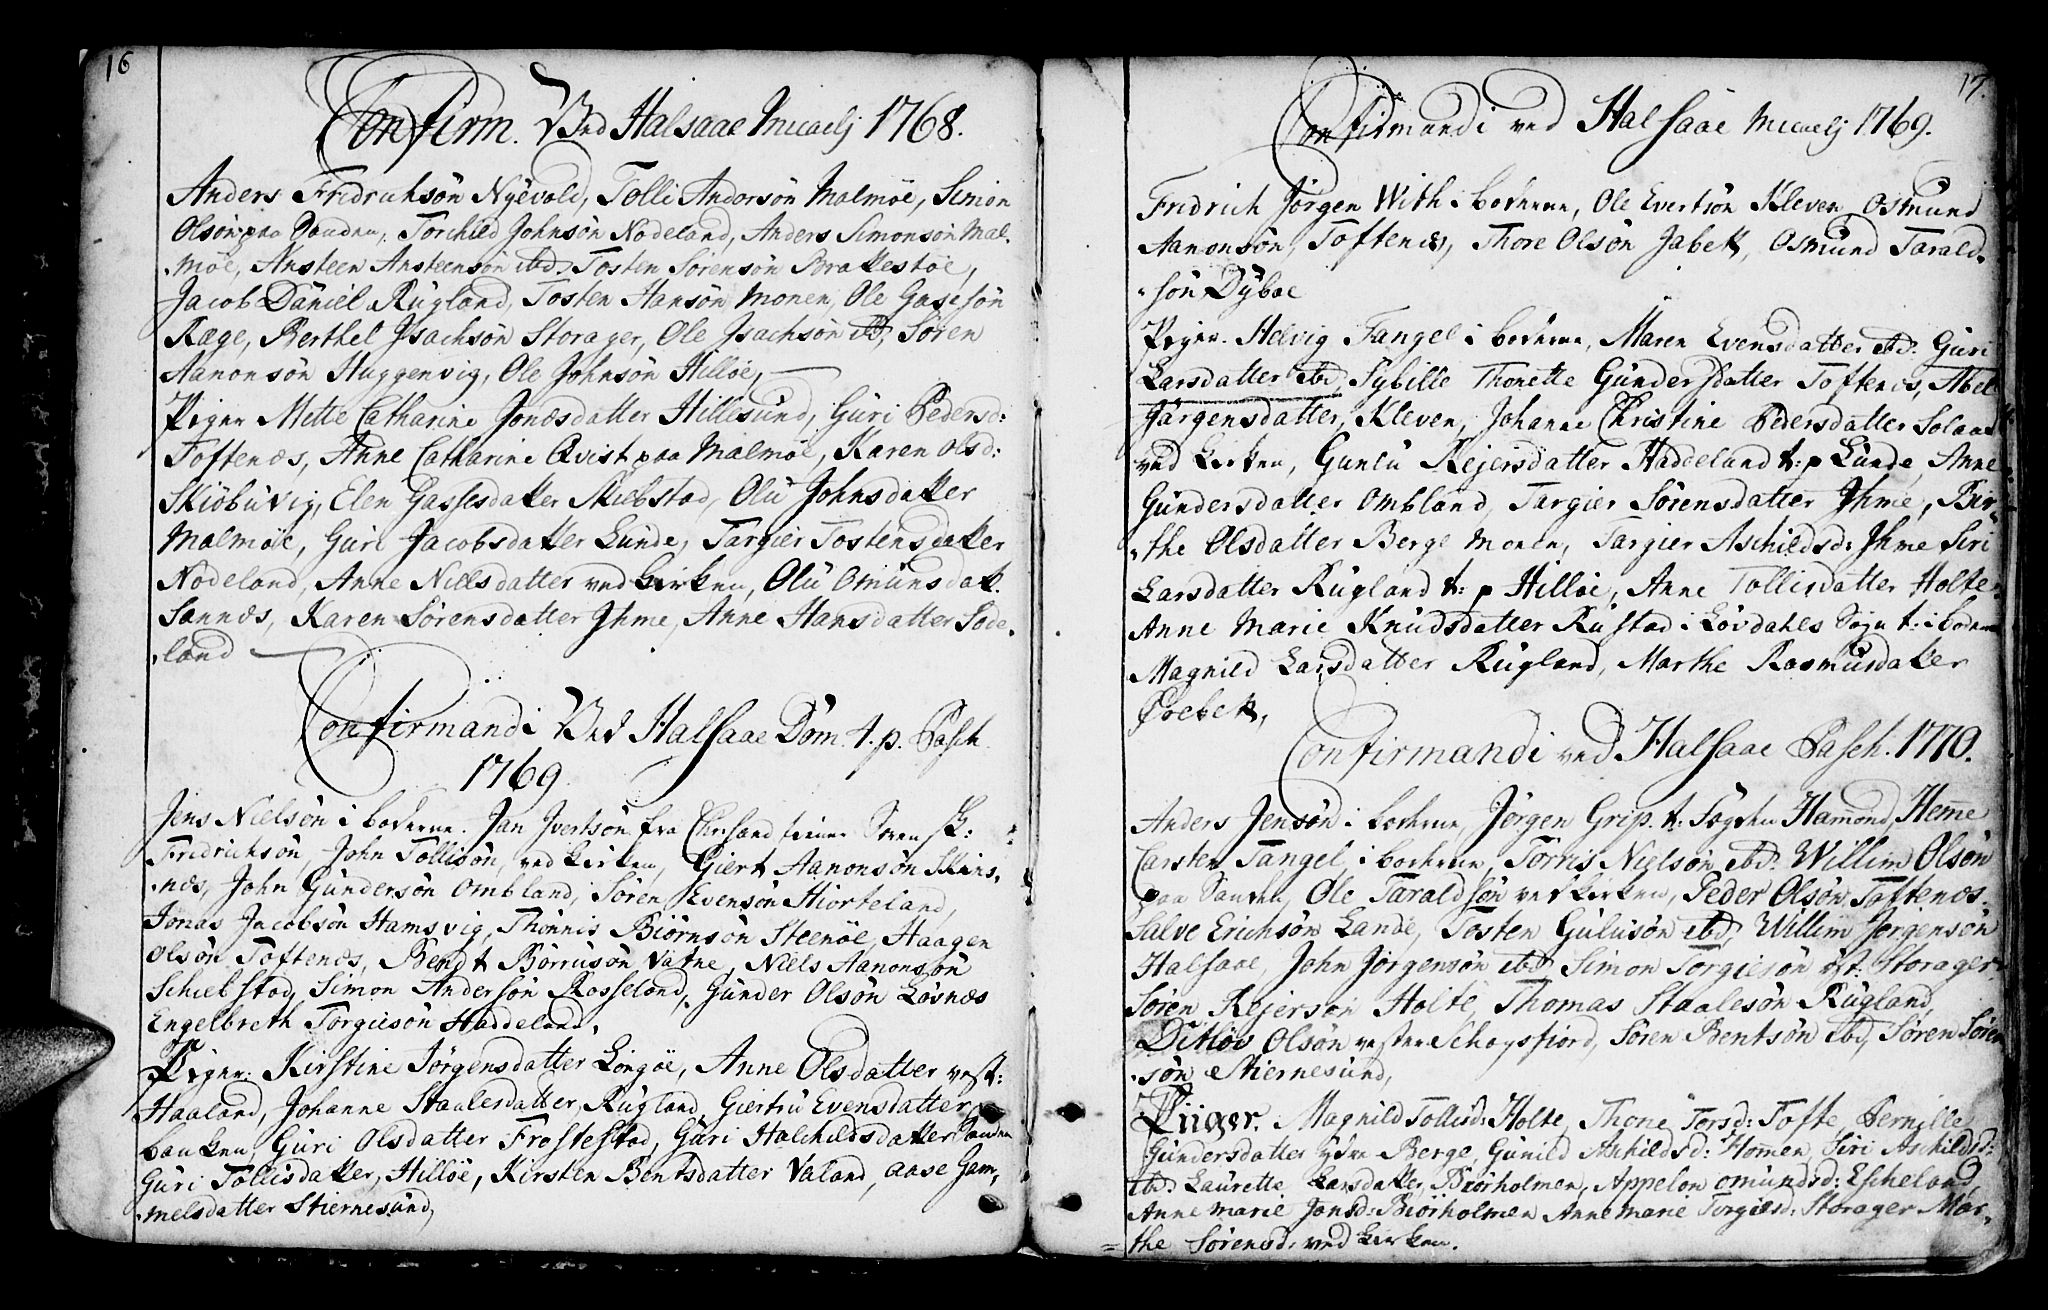 16
Confirm. Ved Halsaae Micaelj 1768.
Anders Fridrichsön Nyevold, Tolli Andorsön Malmöe, Simon
Olsön paa Sanden, Torchild Johnsön Nodeland, Anders Simonsön Mal-
möe, Ansteen Ansteensön ibd. Tosten Sörensön Brakestöe,
Jacob Daniel Rugland, Tosten Hansön Monen, Ole Gasesön
Ræge, Berthel Jsachsön Storager, Ole Jsachsön ibd, Sören
Aanonsön Huggenvig, Ole Johnsön Hillöe,
Piger Mette Catharine Jonæsdatter Hillesund, Guri Pedersd:
Toftenæs, Anne Catharine Qvist paa Malmöe, Karen Olsd:
Skiöbuvig, Elen Gassesdatter Skiebstad, Olu Johnsdatter
Malmöe, Guri Jacobsdatter Lunde, Targier Tostensdatter
Nodeland, Anne Nielsdatter ved Kirken, Olu Omunsdatt.
Sannæs, Karen Sörensdatter Jhme, Anne Hansdatter Sode-
land
Confirmandi Ved Halsaae Dom. 1. p. Pasch.
1769.
Jens Nielsön i boderne. Jan Jvertsön fra Chrsand tiener Sören
Fridrichsön, John Tollisön, ved Kirken, Giert Aanonsön Skins-
næs, John Gundersön Ombland, Sören Evensön Hiorteland,
Jonas Jacobsön Hamsvig, Thönnis Biörnsön Steenöe, Haagen
Olsön Toftenæs, Bendt Börrusön Vatne, Niels Aanonsön
Schiebstad, Simon Andersön Rosseland, Gunder Olsön Lösnæs
Engelbreth Torgiusön Haddeland.
Piger: Kirstine Jörgensdatter Longöe, Anne Olsdatter vest:
Haaland, Johanne Staalesdatter Rugland, Giertru Evensdatter
banken, Guri Olsdatter Frostestad, Guri Halchildsdatter Sanden
Guri Tollisdatter, Hillöe, Kirsten Bentsdatter Valand, Aase Gam-
melsdatter Stiernesund,
17.
Confirmandi ved Halsaae Micaelj 1769.
Fridrich Jörgen With i boderne, Ole Evertsön Kleven, Osmund
Aanonsön, Toftenæs, Thore Olsön Jabek, Osmund Tarald-
sön Dyboe
Piger. Helvig Fangel i boderne, Maren Evensdatter ibd. Guri
Larsdatter ibd, Sybille Thonette Gundersdatter Toftenæs, Abel
Jörgensdatter, Kleven, Johanne Christine Pedersdatter Solaas
ved Kirken, Gunlu Rejersdatter Haddeland t: p Lunde, Anne
Gundersdatter Ombland, Targier Sörensdatter Jhme, Bir-
the Olsdatter Berge Monen, Targier Aschildsd: Jhme Siri
Larsdatter Rugland t: p Hillöe, Anne Tollisdatter Holte,
Anne Marie Knudsdatter Rustad i Lövdahls Sogn t: i boderne
Magnild Larsdatter Rugland, Marthe Rasmusdatter
Örebek,
Confirmandi ved Halsaae Pasch. 1770.
Anders Jensön i boderne, Jörgen Grip t: Fogden Hamond, Heme
Carsten Fangel, i boderne, Torris Nielsön ibd. Willim Olsön
paa Sanden, Ole Taraldsön ved Kirken, Peder Olsön Toftenæs.
Salve Erichsön Lande, Tosten Gulusön ibd, Willim Jörgensön
Halsaae, John Jörgensön ibd Simon Torgiesön öst: Storager
Sören Rejersön Holte, Thomas Staalesön Rugland
Ditlöv Olsön vester Schogsfiord, Sören Bentsön ibd, Sören Sören-
sön Stiernesund,
Piiger. Magnild Tollisd: Holte, Thone Torsd: Tofte, Pernille
Gundersdatter ydre Berge, Gunild Aschildsd: Homen, Siri Aschildsd:
ibd: Laurette Larsdatter, Biörholmen, Appelön Omundsd: Escheland,
Anne Marie Jonsd: Biörholmen Anne Marie Torgiesd: Storager Mar-
the Sörensd. ved Kirken.